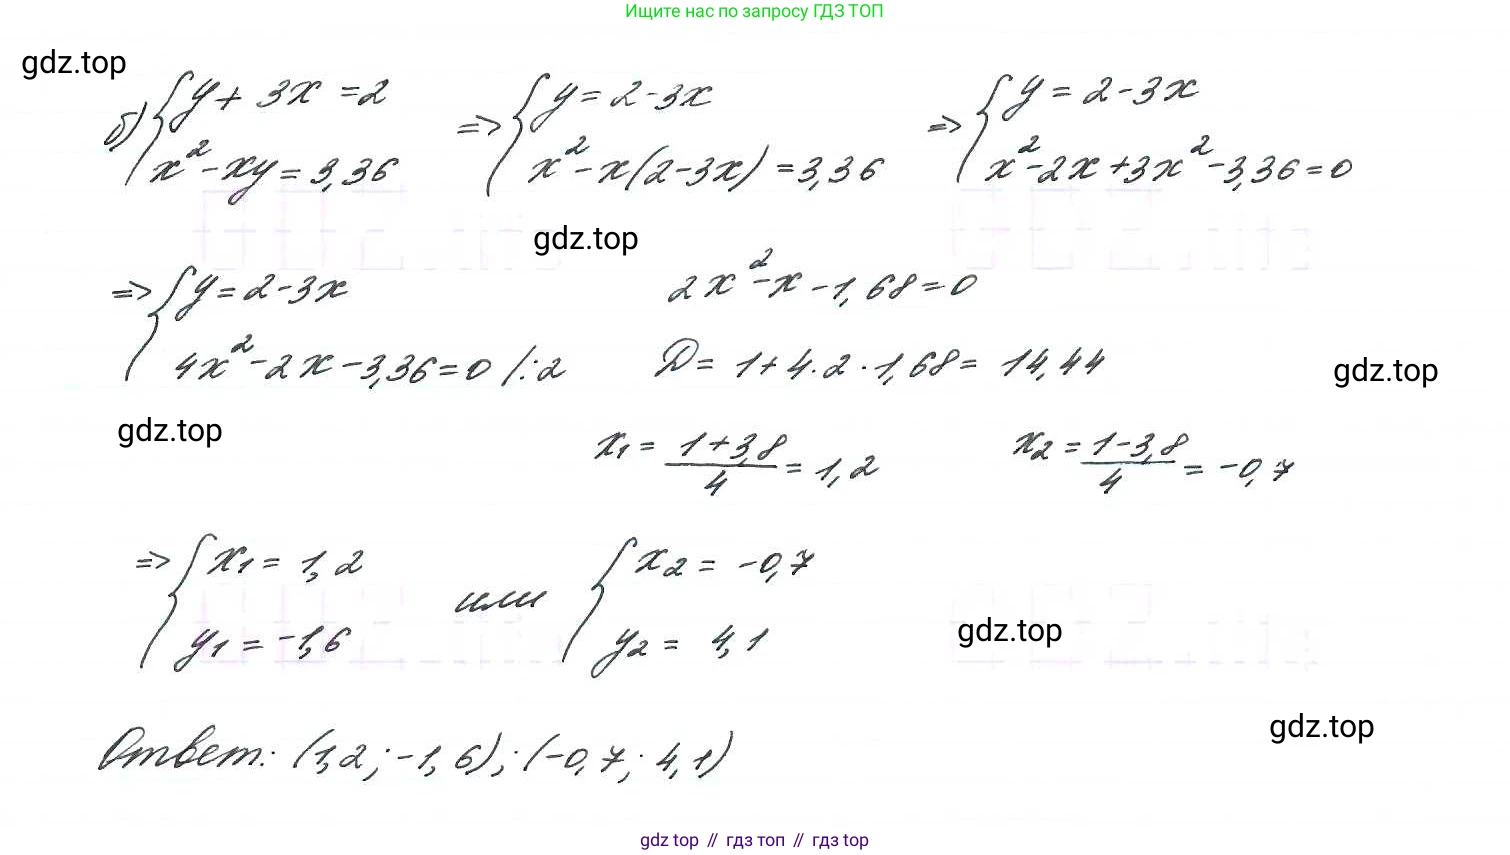 Ищите нас по запросу ГДЗ ТОП
gdz.top
б) { y + 3x = 2 => { y = 2 - 3x => { y = 2 - 3x
x² - xy = 3,36 x² - x(2 - 3x) = 3,36 x² - 2x + 3x² - 3,36 = 0
gdz.top
=> { y = 2 - 3x 2x² - x - 1,68 = 0
4x² - 2x - 3,36 = 0 /:2 D = 1 + 4·2·1,68 = 14,44
gdz.top
gdz.top
x₁ = (1 + 3,8)/4 = 1,2 x₂ = (1 - 3,8)/4 = -0,7
=> { x₁ = 1,2 или { x₂ = -0,7
y₁ = -1,6 y₂ = 4,1
gdz.top
gdz.top
Ответ: (1,2; -1,6); (-0,7; 4,1)
gdz top // гдз топ // гдз top